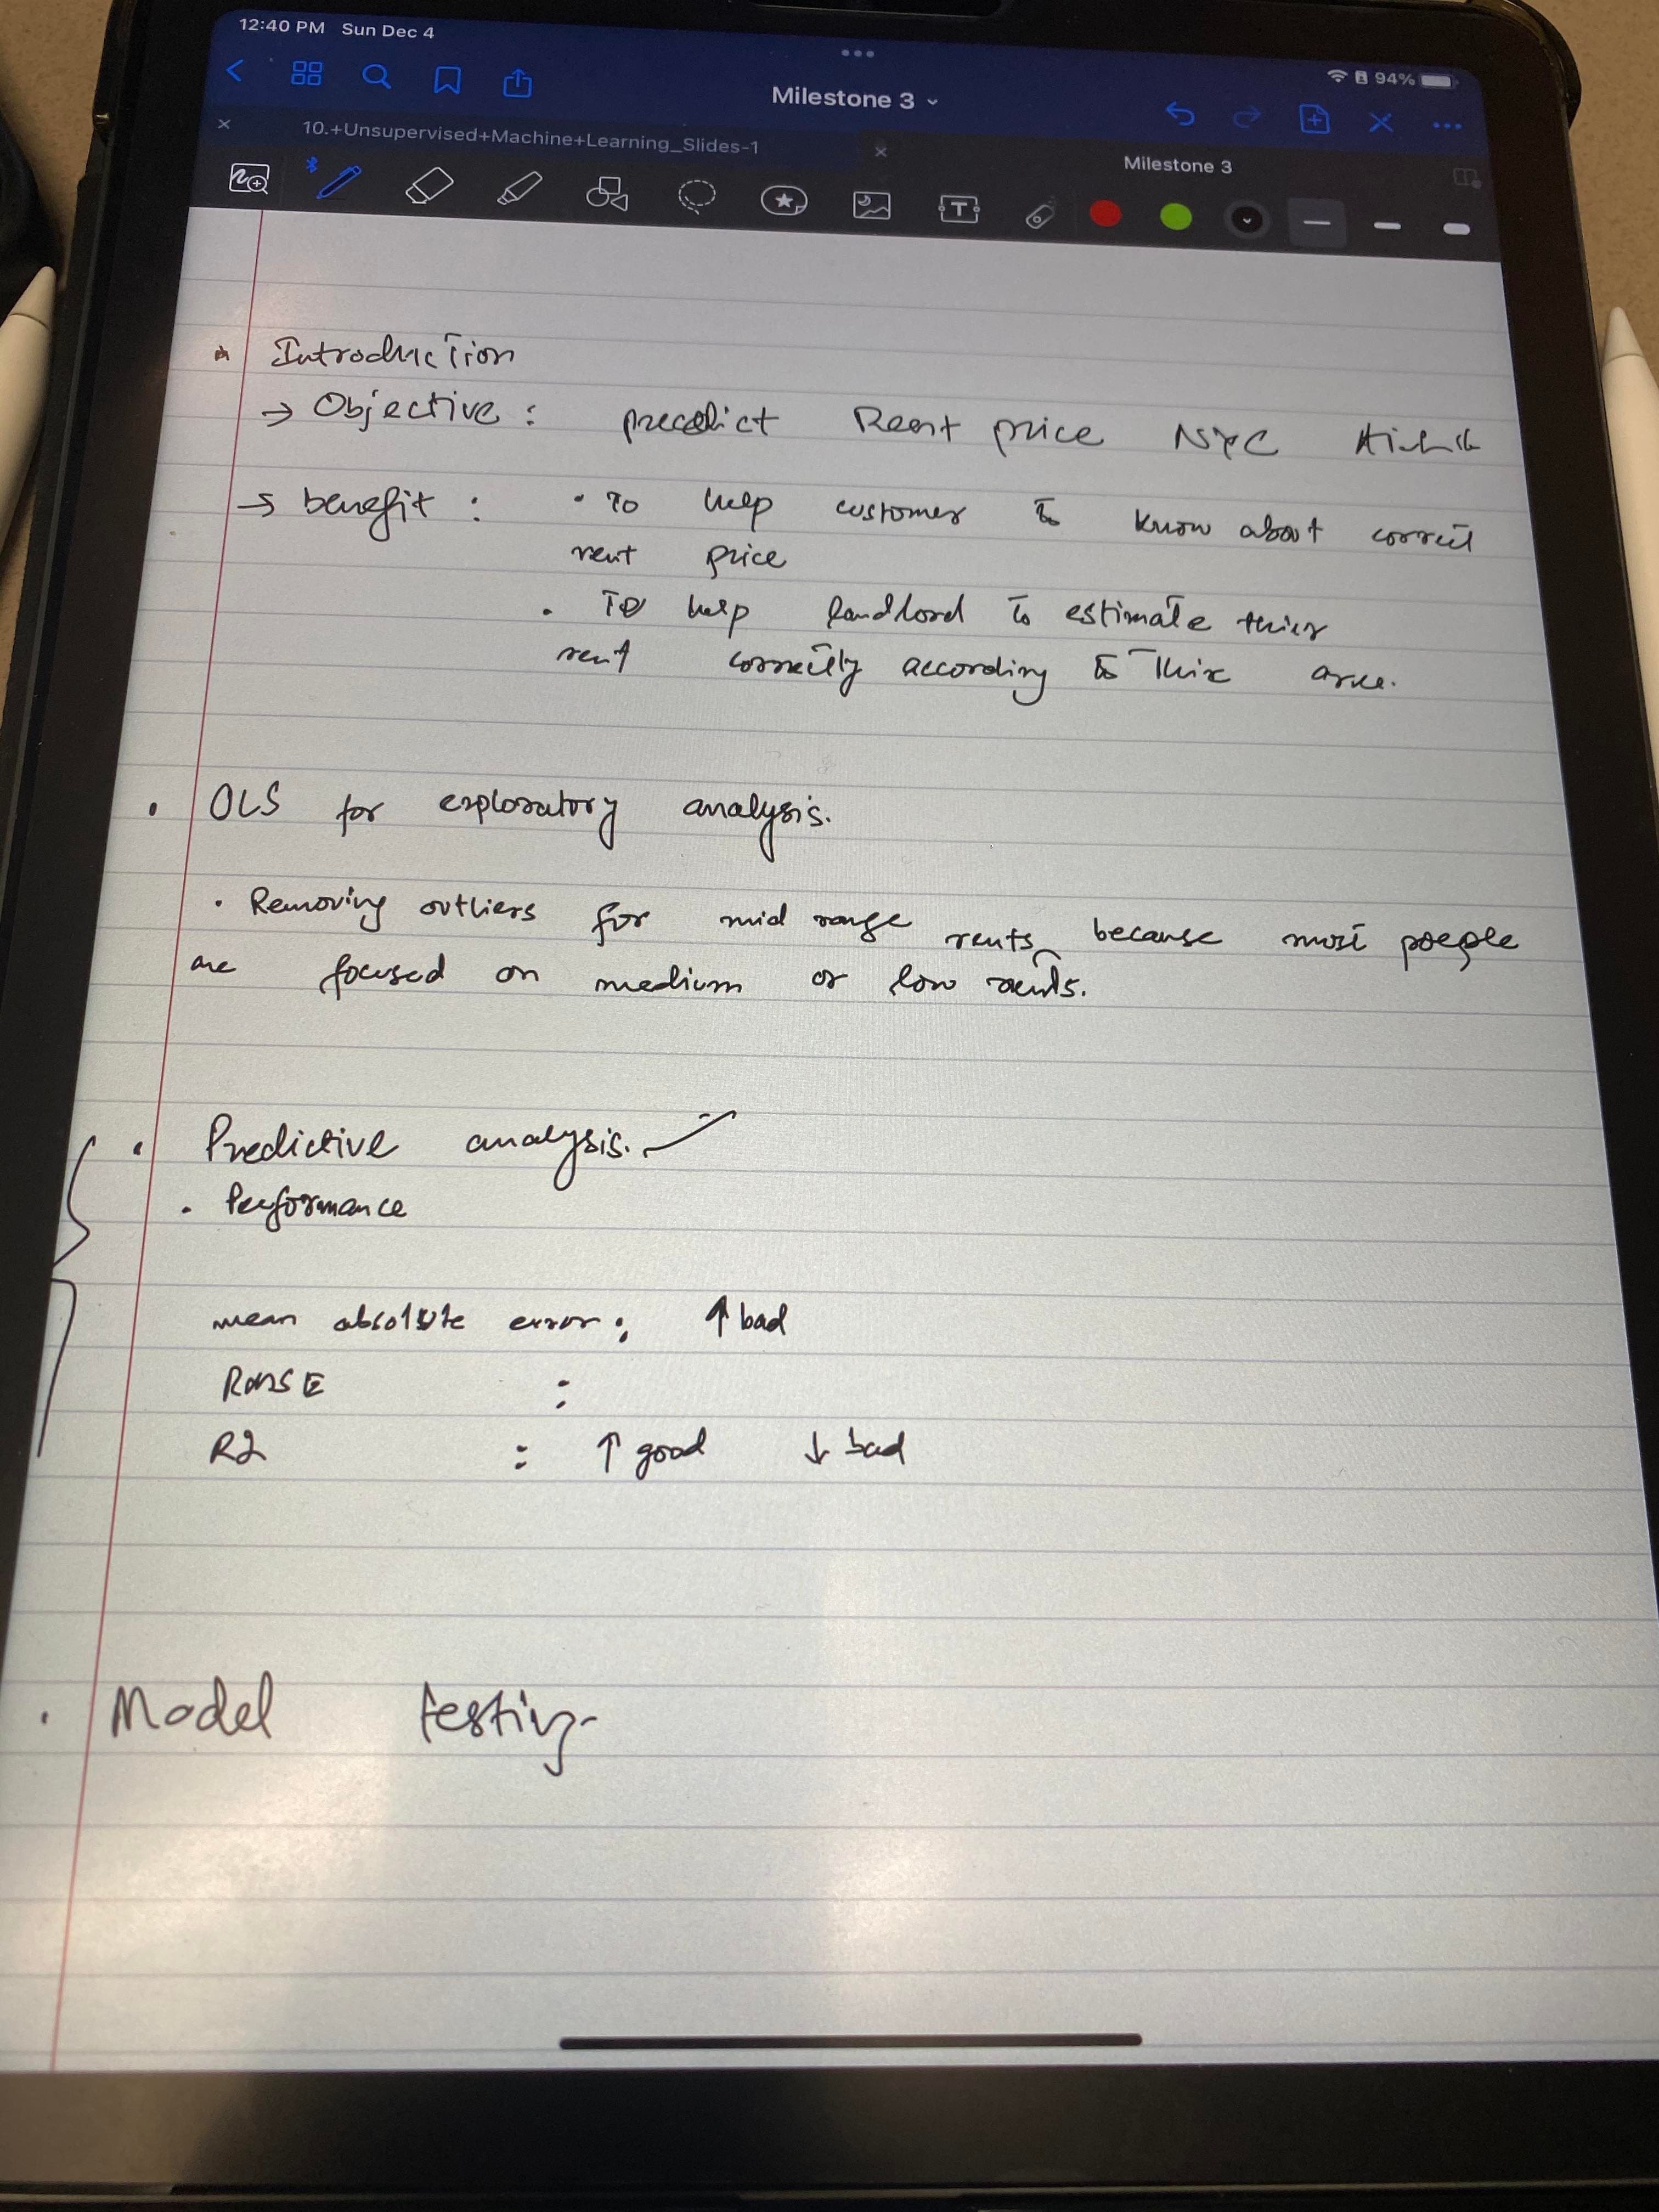 12:40 PM Sun Dec 4
94%
Milestone 3
10.+Unsupervised+Machine+Learning_Slides-1
Milestone 3
Introduction
→ Objective : precdict Reent price NYC
→ benefit : • To help customer to know about correct
rent price
• To help landlord to estimate thier
rent correctly according to
• OLS for exploratory analysis.
• Removing outliers for mid range rents, because most poeple
are focused on medium or low rents.
• Predictive analysis.
• Performance
mean absolute error : ↑ bad
RMSE :
R2 : ↑ good ↓ bad
• Model testing